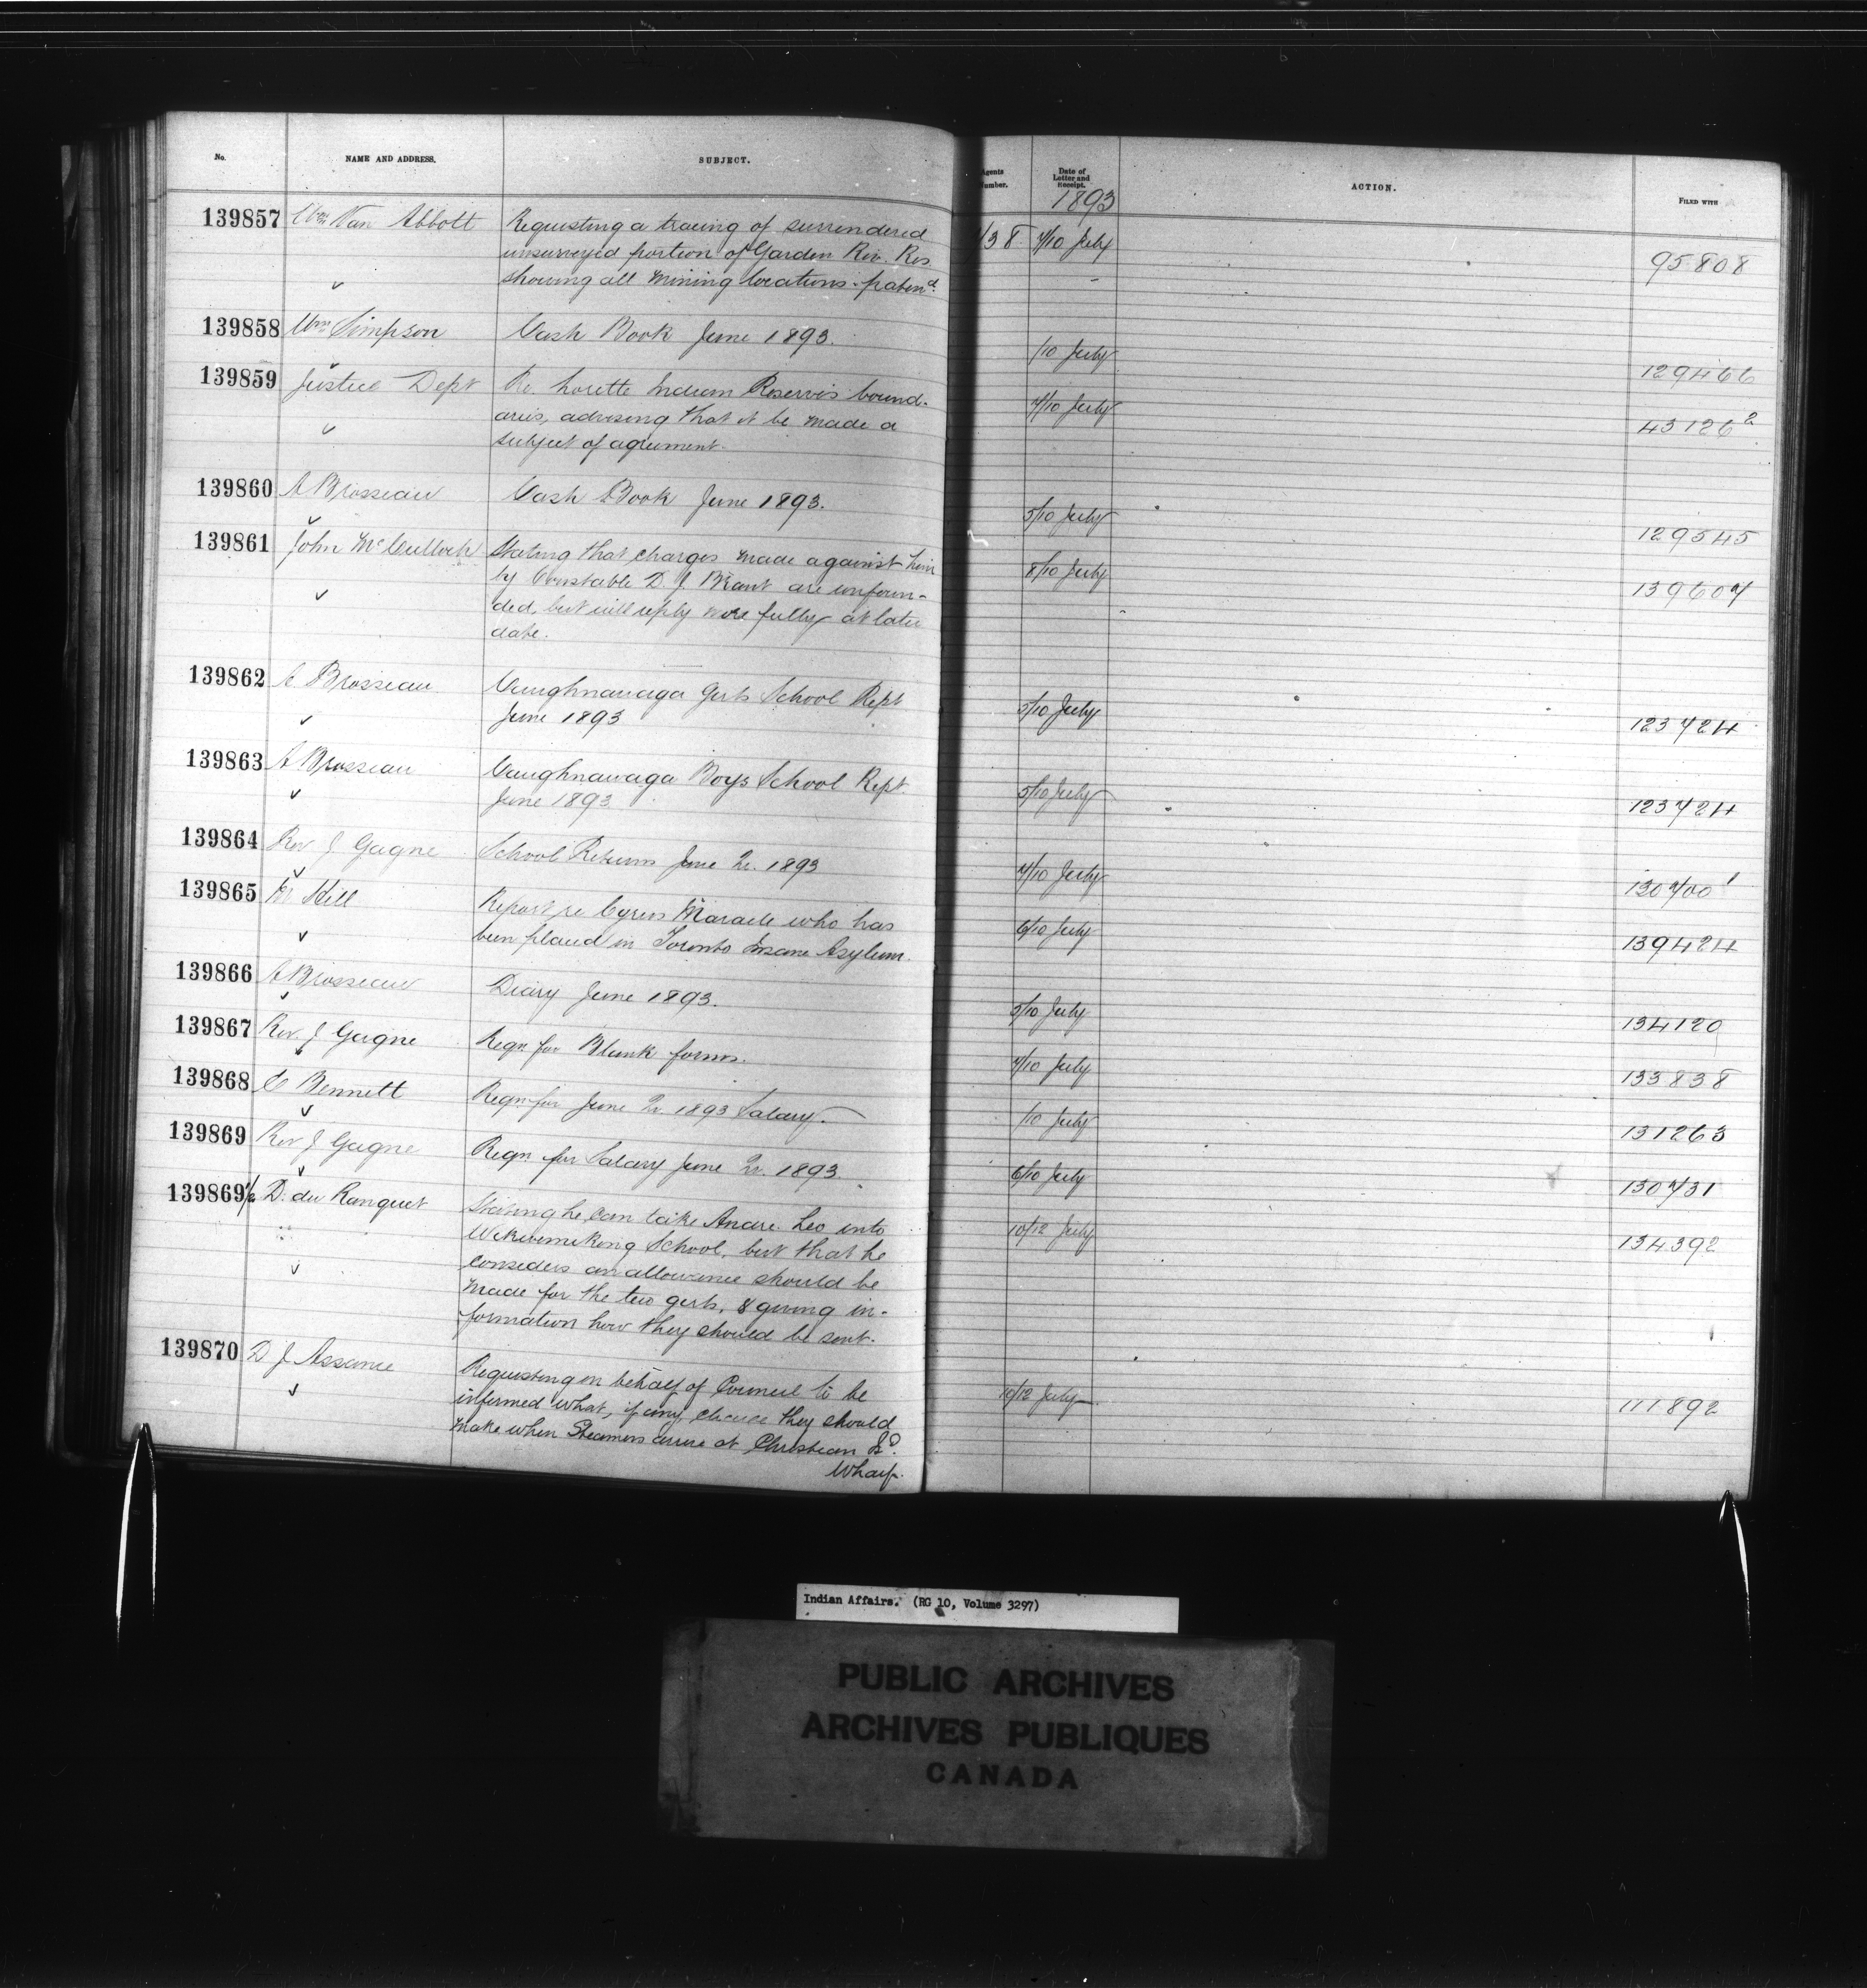 No. NAME AND ADDRESS. SUBJECT. Agents Number. Date of Letter and Receipt. ACTION. FILED WITH
1893
139857 Wm Van Abbott Requesting a tracing of surrendered 138 7/10 July 95808
unsurveyed portion of Garden Riv. Res
showing all mining locations patend.
139858 Wm Simpson Cash Book June 1893. /10 July 129466
139859 Justice Dept Re. Lorette Indian Reserves bound- 7/10 July 43126²
aries, advising that it be made a
subject of agreement.
139860 A Brosseau Cash Book June 1893. 5/10 July 129545
139861 John McCulloch Stating that charges made against him 8/10 July 139607
by Constable D. J. Brant are unfoun-
ded, but will reply more fully at later
date.
139862 A Brosseau Caughnawaga Girls School Rept 5/10 July 123724
June 1893
139863 A Brosseau Caughnawaga Boys School Rept. 5/10 July 123724
June 1893
139864 Rev J Gagne School Returns June Qr. 1893 7/10 July 130700¹
139865 Hill Report re Cyrus Maracle who has 6/10 July 139424
been placed in Toronto Insane Asylum.
139866 A Brosseau Diary June 1893. 5/10 July 134120
139867 Rev. J Gagne Reqn. for Blank forms. 7/10 July 133838
139868 C Bennett Reqn. for June Qr. 1893 Salary. /10 July 131263
139869 Rev J Gagne Reqn. for Salary June Qr. 1893. 6/10 July 130731
139869½ D. du Ranquet Stating he can take Andre Leo into 10/12 July 134392
Wikwemikong School, but that he
considers an allowance should be
made for the two girls, & giving in-
formation how they should be sent.
139870 D J Assance Requesting on behalf of Council to be 10/12 July 111892
informed what, if any, charge they should
make when Steamers arrive at Christian Isd.
Wharf.
Indian Affairs. (RG 10, Volume 3297)
PUBLIC ARCHIVES
ARCHIVES PUBLIQUES
CANADA